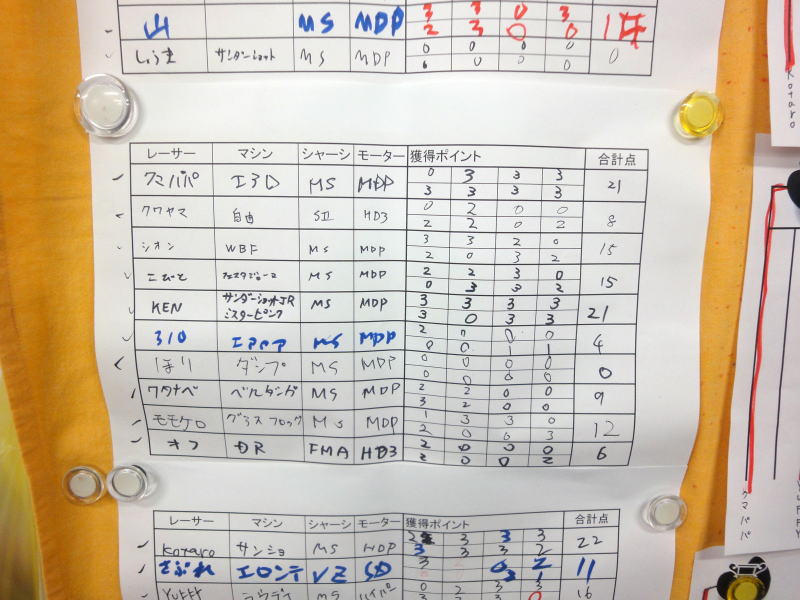 山 MS MDP 3 3 0 3
2 3 0 0
しょうま サンダーショット MS MDP 0 0 0 0 0
0 0 0 0
Kotaro
レーサー マシン シャーシ モーター 獲得ポイント 合計点
クマパパ エアロ MS MDP 0 3 3 3 21
3 3 3 3
クワヤマ 自由 SⅡ HD3 0 2 0 0 8
2 2 0 2
シオン WBF MS MDP 3 3 2 0 15
2 0 3 2
MS MDP 2 2 3 0 15
0 3 3 2
KEN サンダーショットJR MS MDP 3 3 3 3 21
ミスターピンク 3 0 3 3
310 MS MDP 2 0 0 0 4
0 0 1 1
ほり ダンプ MS MDP 0 0 0 0 0
0 0 0 0
ワタナベ ベルダンガ MS MDP 2 2 0 0 9
3 2 0 0
モモケロ グラスフロッグ MS MDP 1 3 3 0 12
2 0 0 3
オフ DR FMA HD3 2 0 0 0 6
2 0 0 2
クマパパ
レーサー マシン シャーシ モーター 獲得ポイント 合計点
Kotaro サンショ MS MDP 3 3 3 22
3 3 3 2
さぶれ エロンテ VZ 11